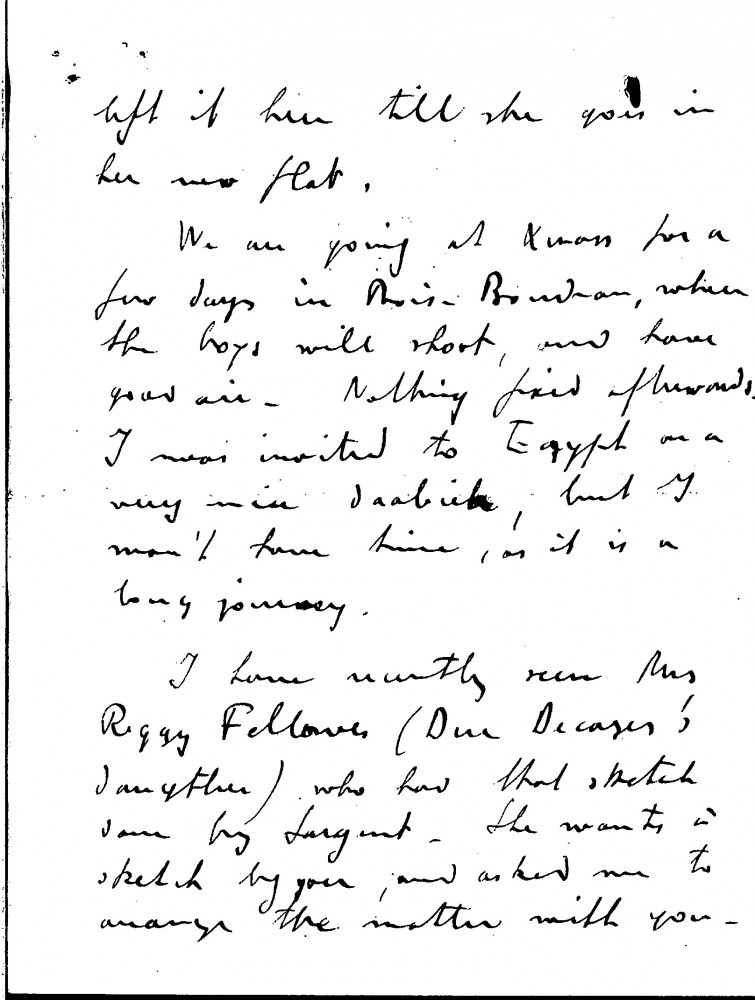 left it here till she goes in
her new flat.
We are going at Xmass for a
few days in Bois-Boudran, where
the boys will shoot, and have
good air - Nothing fixed afterwards.
I was invited to Egypt on a
very nice daabieh, but I
won't have time, as it is a
long journey.
I have recently seen Mrs
Reggy Fellowes (Duc Decazes's
daugther) who had that sketch
done by Sargent - She wants a
sketch by you, and asked me to
arrange the matter with you -